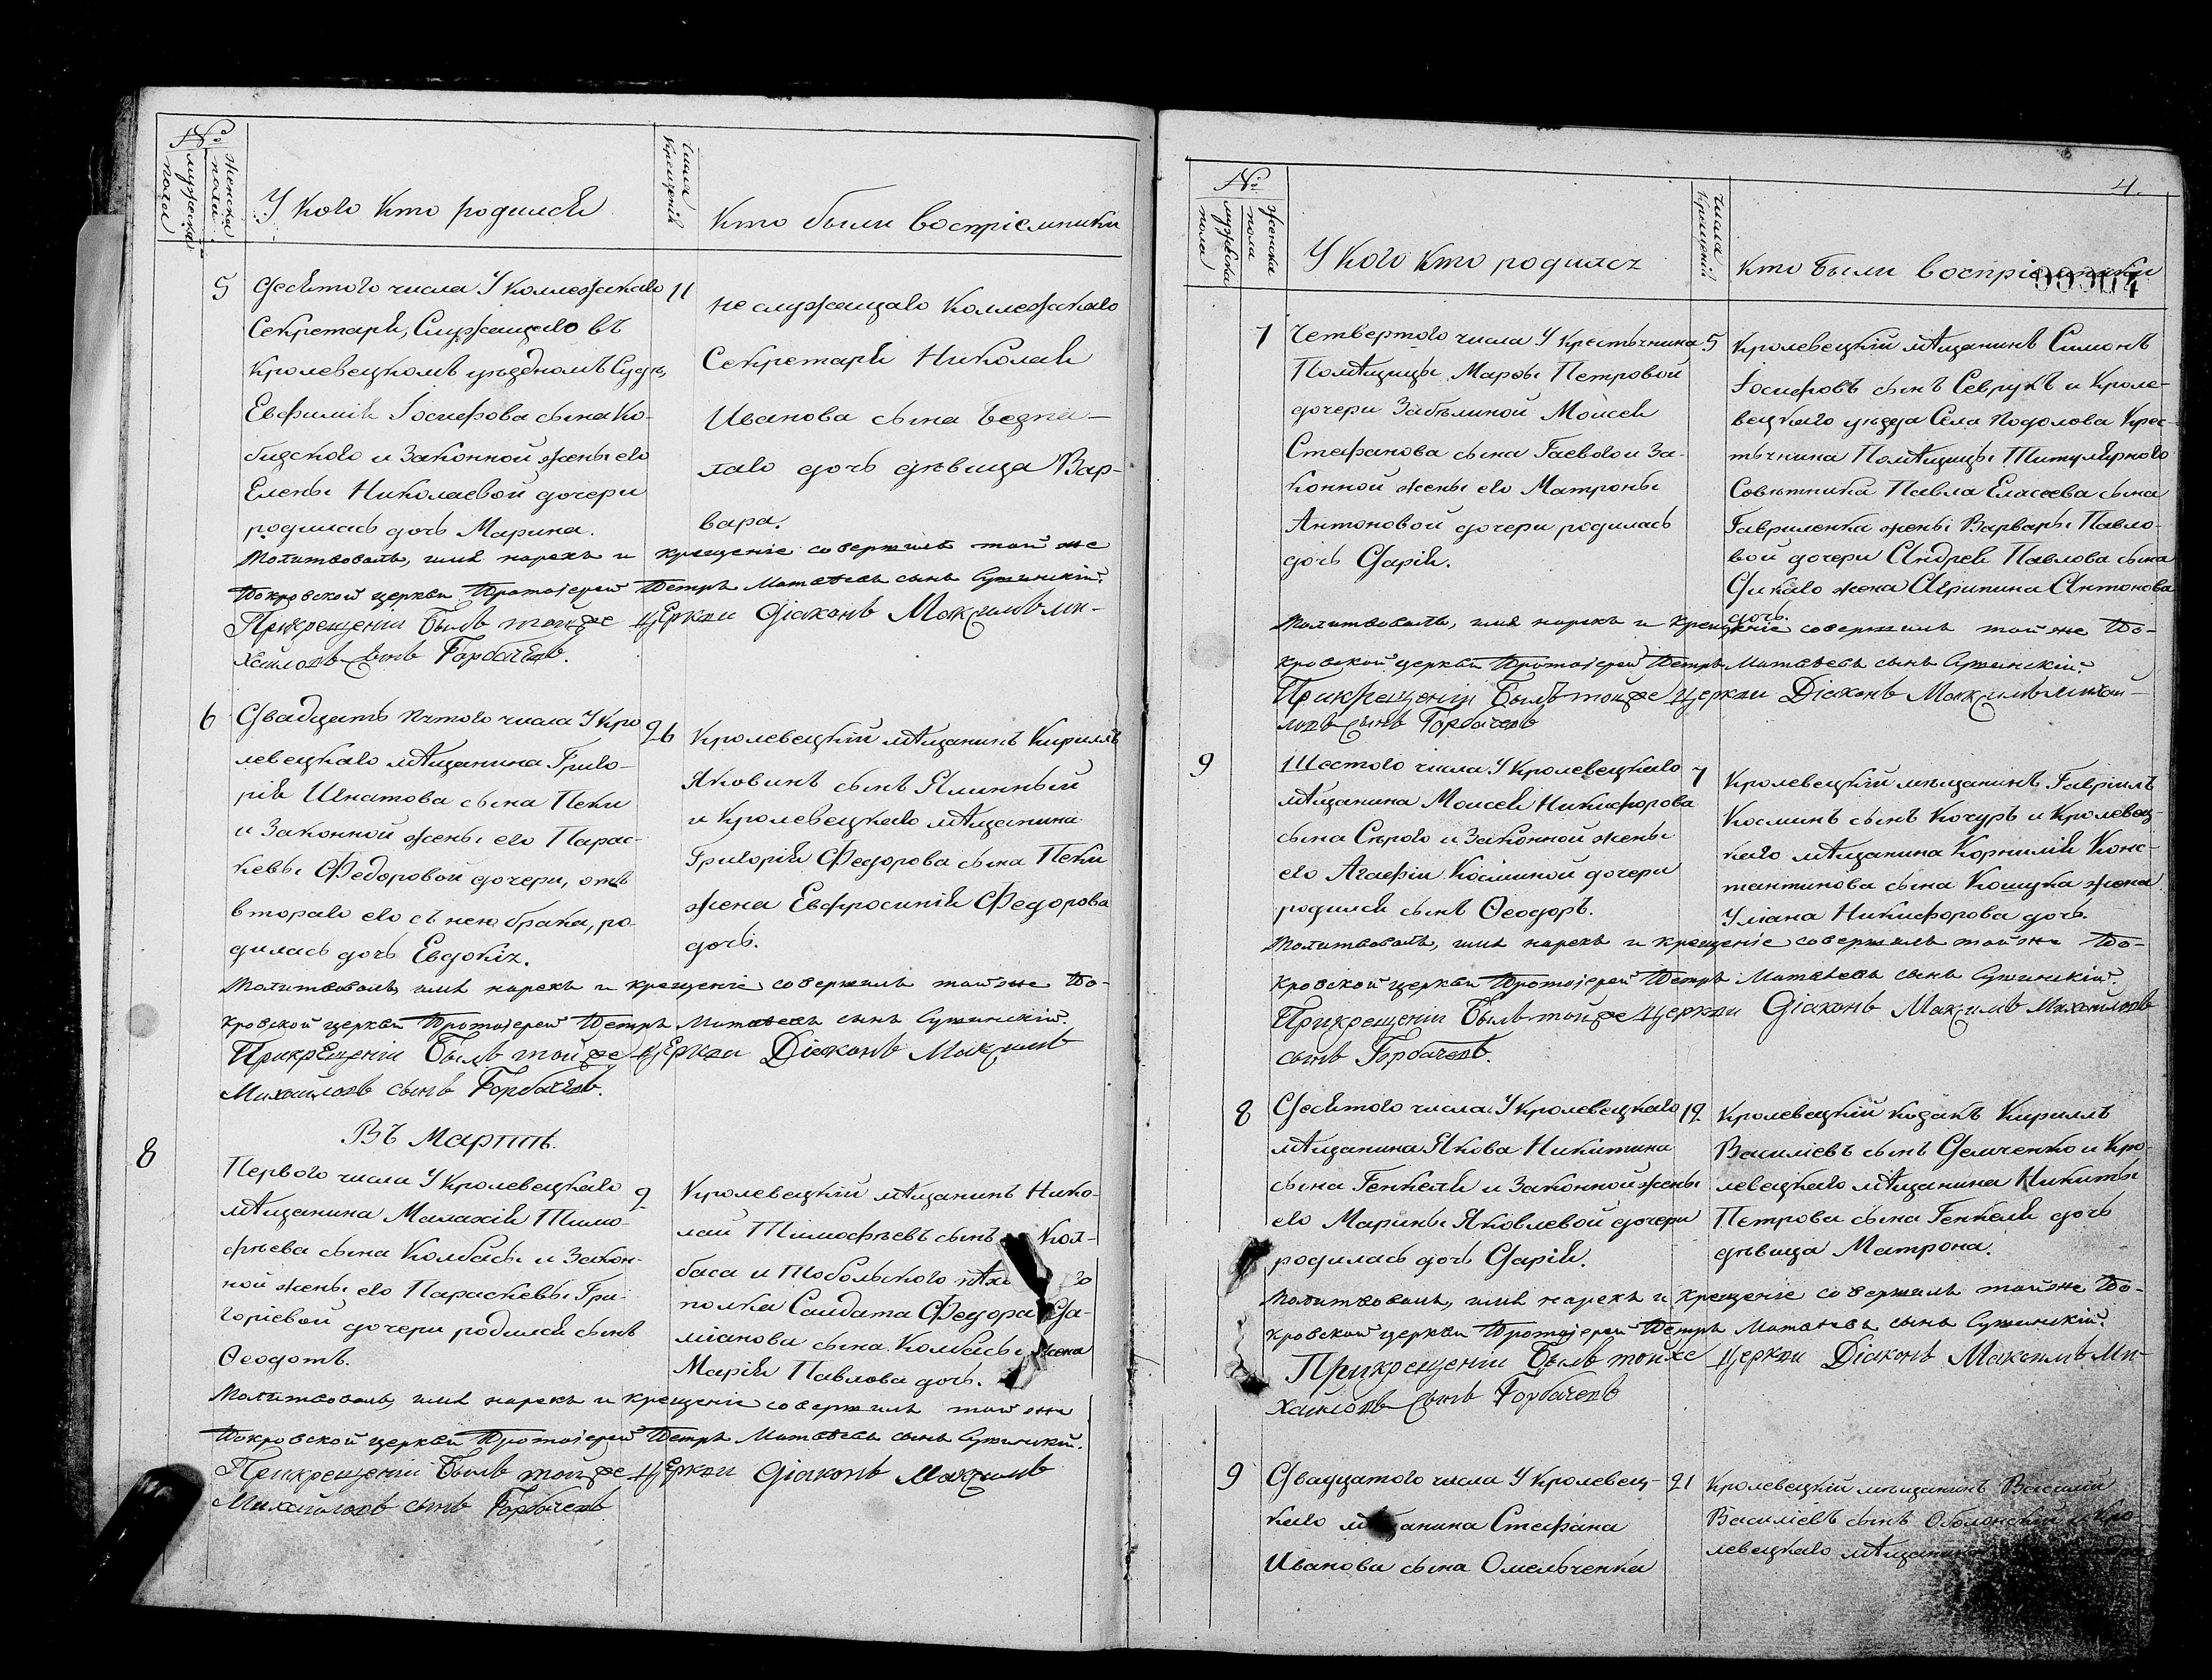 №
женска пола
мужеска пола
У кого кто родился
Числа Крещеній
Кто были воспріемники
5
Десятого числа У Коллежскаго
Секретаря, Служащаго въ
Кролевецкомъ уѣздномъ Судѣ,
Евфимія Іосифова сына Ко-
бидского и Законной жены его
Елены Николаевой дочери
родилась дочь Марина.
11
не служащаго Коллежскаго
Секретаря Николая
Иванова сына
дочь дѣвица Вар-
вара.
Молитвовалъ, имя нарекъ и крещеніе совершилъ той же
Покровской церкви Протоіерей Петръ Матвѣевъ сынъ
Прикрещеніи былъ тойже церкви Діаконъ Максимъ Ми-
хайловъ сынъ Горбачевъ.
6
Двадцать пятого числа У Кро
левецкаго мѣщанина Григо-
рія Игнатова сына Пеки
и Законной жены его Парас-
кевы Федоровой дочери, отъ
втораго его съ нею брака, ро-
дилась дочь Евдокія.
26
Кролевецкій мѣщанинъ Кириллъ
Яковинъ сынъ Ялинный
и Кролевецкаго мѣщанина
Григорія Федорова сына Пеки
жена Евфросинія Федорова
дочь.
Молитвовалъ, имя нарекъ и крещеніе совершилъ той же По-
кровской церкви Протоіерей Петръ Матвѣевъ сынъ
Прикрещеніи былъ тойже церкви Діаконъ Максимъ
Михайловъ сынъ Горбачевъ.
Въ Мартѣ.
8
Перваго числа У Кролевецкаго
мѣщанина Малахія Тимо-
фѣева сына Колбасы и Закон-
ной жены его Параскевы Гри-
горіевой дочери родился сынъ
Феодотъ.
2
Кролевецкій мѣщанинъ Нико-
лай Тимофѣевъ сынъ Кол-
баса и Тобольского
полка Салдата Федора Да-
міанова сына Колбасы жена
Марія Павлова дочь.
Молитвовалъ, имя нарекъ и крещеніе совершилъ той же
Покровской церкви Протоіерей Петръ Матвѣевъ сынъ
Прикрещеніи былъ тойже церкви Діаконъ Максимъ
Михайловъ сынъ Горбачевъ
4.
№
женска пола
мужеска пола
У кого кто родился
Числа Крещеній
Кто были воспріемники
7
Четвертого числа У Крестьянина
Помѣщицы Марѳы Петровой
дочери Забѣлиной Моисея
Стефанова сына Гаевого и За-
конной жены его Матроны
Антоновой дочери родилась
дочь Дарія.
5
Кролевецкій мѣщанинъ Симонъ
Іосифовъ сынъ Севрукъ и Кроле-
вецкаго уѣзда Села Подолова Крес-
тьянина Помѣщицы Титулярного
Совѣтника Павла Елисеева сына
Гавриленка жены Варвары Павло-
вой дочери Андрея Павлова сына
Дикаго жена Агрипина Антонова
дочь.
Молитвовалъ, имя нарекъ и крещеніе совершилъ той же По-
кровской церкви Протоіерей Петръ Матвѣевъ сынъ
Прикрещеніи былъ тойже церкви Діаконъ Максимъ Михай-
ловъ сынъ Горбачевъ
9
Шестого числа У Кролевецкаго
мѣщанина Моисея Никифорова
сына Сѣрого и Законной жены
его Агафіи Косминой дочери
родился сынъ Феодоръ.
7
Кролевецкій мѣщанинъ Гавріилъ
Косминъ сынъ Кочуръ и Кролевец-
каго мѣщанина Корнилія Конс-
тантинова сына Кошука жена
Уліана Никифорова дочь.
Молитвовалъ, имя нарекъ и крещеніе совершилъ той же По-
кровской церкви Протоіерей Петръ Матвѣевъ сынъ
Прикрещеніи былъ тойже церкви Діаконъ Максимъ Михайловъ
сынъ Горбачевъ.
8
Десятого числа У Кролевецкаго
мѣщанина Якова Никитина
сына Генкеля и Законной жены
его Марины Яковлевой дочери
родилась дочь Дарія.
12
Кролевецкій козакъ Кириллъ
Василіевъ сынъ Демченко и Кро-
левецкаго мѣщанина Никиты
Петрова сына Генкеля дочь
дѣвица Матрона.
Молитвовалъ, имя нарекъ и крещеніе совершилъ той же По-
кровской церкви Протоіерей Петръ Матвѣевъ сынъ
Прикрещеніи былъ тойже церкви Діаконъ Максимъ Ми-
хайловъ сынъ Горбачевъ
9
Двадцатого числа У Кролевец-
каго мѣщанина Стефана
Иванова сына Омельченка
21
Кролевецкій мѣщанинъ Василій
Василіевъ сынъ Оболонскій и Кро
левецкаго мѣщанина